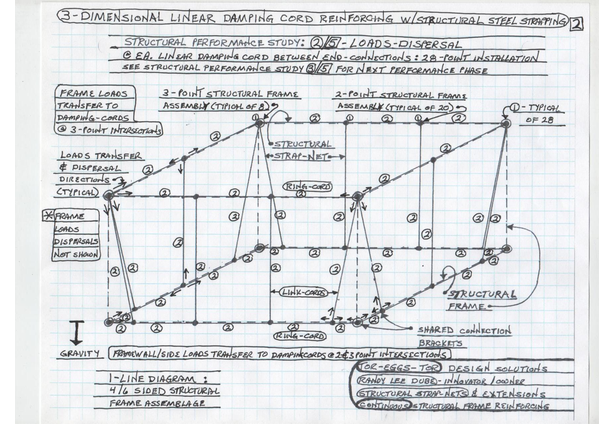 3-DIMENSIONAL LINEAR DAMPING CORD REINFORCING W/STRUCTURAL STEEL STRAPPING 2
STRUCTURAL PERFORMANCE STUDY: 2/5 - LOADS-DISPERSAL
@ EA. LINEAR DAMPING CORD BETWEEN END-CONNECTIONS: 28-POINT INSTALLATION
SEE STRUCTURAL PERFORMANCE STUDY 3/5 FOR NEXT PERFORMANCE PHASE
FRAME LOADS
TRANSFER TO
DAMPING-CORDS
@ 3-POINT INTERSECTIONS
3-POINT STRUCTURAL FRAME
ASSEMBLY (TYPICAL OF 8)
2-POINT STRUCTURAL FRAME
ASSEMBLY (TYPICAL OF 20)
1 - TYPICAL
OF 28
STRUCTURAL
STRAP-NET
LOADS TRANSFER
& DISPERSAL
DIRECTIONS
(TYPICAL)
RING-CORD
* FRAME
LOADS
DISPERSALS
NOT SHOWN
LINK-CORDS
STRUCTURAL
FRAME
RING-CORD
SHARED CONNECTION
BRACKETS
GRAVITY
FRAMEWALL/SIDE LOADS TRANSFER TO DAMPINCORDS @ 2&3 POINT INTERSECTIONS
1-LINE DIAGRAM:
4/6 SIDED STRUCTURAL
FRAME ASSEMBLAGE
TOR-EGGS-TOR DESIGN SOLUTIONS
RANDY LEE DUBE-INNOVATOR/OWNER
STRUCTURAL STRAP-NETS & EXTENSIONS
CONTINUOUS STRUCTURAL FRAME REINFORCING